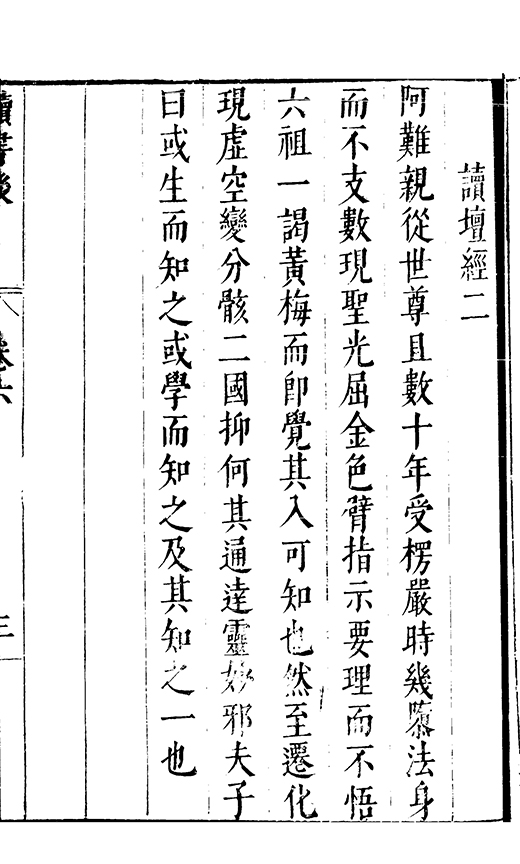 讀壇經二
阿難親從世尊且數十年受楞嚴時幾隳法身
而不支數現聖光屈金色臂指示要理而不悟
六祖一謁黃梅而卽覺其入可知也然至遷化
現虛空變分骸二國抑何其通達靈妙邪夫子
曰或生而知之或學而知之及其知之一也
讀書
卷六
三